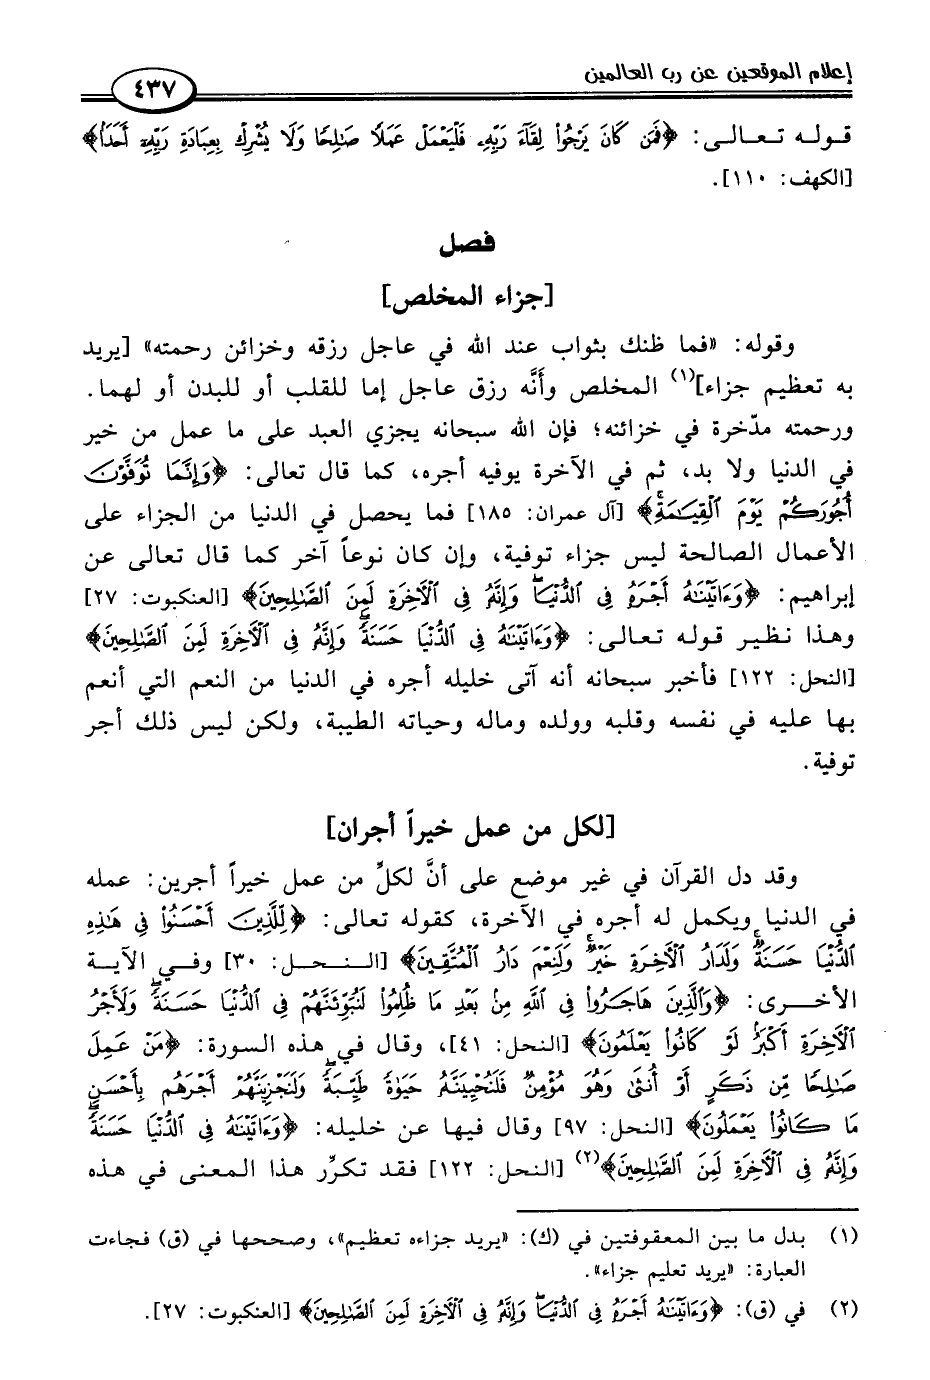 إعلام الموقعين عن رب العالمين
٤٣٧
قوله تعالى: ﴿فَمَن كَانَ يَرْجُوا۟ لِقَآءَ رَبِّهِۦ فَلْيَعْمَلْ عَمَلًا صَٰلِحًا وَلَا يُشْرِكْ بِعِبَادَةِ رَبِّهِۦٓ أَحَدًۢا﴾
[الكهف: ١١٠].
فصل
[جزاء المخلص]
وقوله: «فما ظنك بثواب عند الله في عاجل رزقه وخزائن رحمته» [يريد
به تعظيم جزاء](١) المخلص وأَنَّه رزق عاجل إما للقلب أو للبدن أو لهما.
ورحمته مدّخرة في خزائنه؛ فإن الله سبحانه يجزي العبد على ما عمل من خير
في الدنيا ولا بد، ثم في الآخرة يوفيه أجره، كما قال تعالى: ﴿وَإِنَّمَا تُوَفَّوْنَ
أُجُورَكُمْ يَوْمَ ٱلْقِيَٰمَةِۖ﴾ [آل عمران: ١٨٥] فما يحصل في الدنيا من الجزاء على
الأعمال الصالحة ليس جزاء توفية، وإن كان نوعاً آخر كما قال تعالى عن
إبراهيم: ﴿وَءَاتَيْنَٰهُ أَجْرَهُۥ فِى ٱلدُّنْيَاۖ وَإِنَّهُۥ فِى ٱلْأَخِرَةِ لَمِنَ ٱلصَّٰلِحِينَ﴾ [العنكبوت: ٢٧]
وهذا نظير قوله تعالى: ﴿وَءَاتَيْنَٰهُ فِى ٱلدُّنْيَا حَسَنَةًۖ وَإِنَّهُۥ فِى ٱلْأَخِرَةِ لَمِنَ ٱلصَّٰلِحِينَ﴾
[النحل: ١٢٢] فأخبر سبحانه أنه آتى خليله أجره في الدنيا من النعم التي أنعم
بها عليه في نفسه وقلبه وولده وماله وحياته الطيبة، ولكن ليس ذلك أجر
توفية.
[لكل من عمل خيراً أجران]
وقد دل القرآن في غير موضع على أنَّ لكلِّ من عمل خيراً أجرين: عمله
في الدنيا ويكمل له أجره في الآخرة، كقوله تعالى: ﴿لِّلَّذِينَ أَحْسَنُوا۟ فِى هَٰذِهِ
ٱلدُّنْيَا حَسَنَةٌۚ وَلَدَارُ ٱلْأَخِرَةِ خَيْرٌۚ وَلَنِعْمَ دَارُ ٱلْمُتَّقِينَ﴾ [النحل: ٣٠] وفي الآية
الأخرى: ﴿وَٱلَّذِينَ هَاجَرُوا۟ فِى ٱللَّهِ مِنۢ بَعْدِ مَا ظُلِمُوا۟ لَنُبَوِّئَنَّهُمْ فِى ٱلدُّنْيَا حَسَنَةًۖ وَلَأَجْرُ
ٱلْأَخِرَةِ أَكْبَرُۚ لَوْ كَانُوا۟ يَعْلَمُونَ﴾ [النحل: ٤١]، وقال في هذه السورة: ﴿مَنْ عَمِلَ
صَٰلِحًا مِّن ذَكَرٍ أَوْ أُنثَىٰ وَهُوَ مُؤْمِنٌ فَلَنُحْيِيَنَّهُۥ حَيَوٰةً طَيِّبَةًۖ وَلَنَجْزِيَنَّهُمْ أَجْرَهُم بِأَحْسَنِ
مَا كَانُوا۟ يَعْمَلُونَ﴾ [النحل: ٩٧] وقال فيها عن خليله: ﴿وَءَاتَيْنَٰهُ فِى ٱلدُّنْيَا حَسَنَةًۖ
وَإِنَّهُۥ فِى ٱلْأَخِرَةِ لَمِنَ ٱلصَّٰلِحِينَ﴾(٢) [النحل: ١٢٢] فقد تكرَّر هذا المعنى في هذه
(١) بدل ما بين المعقوفتين في (ك): «يريد جزاءه تعظيم»، وصححها في (ق) فجاءت
العبارة: «يريد تعليم جزاء».
(٢) في (ق): ﴿وَءَاتَيْنَٰهُ أَجْرَهُۥ فِى ٱلدُّنْيَاۖ وَإِنَّهُۥ فِى ٱلْأَخِرَةِ لَمِنَ ٱلصَّٰلِحِينَ﴾ [العنكبوت: ٢٧].